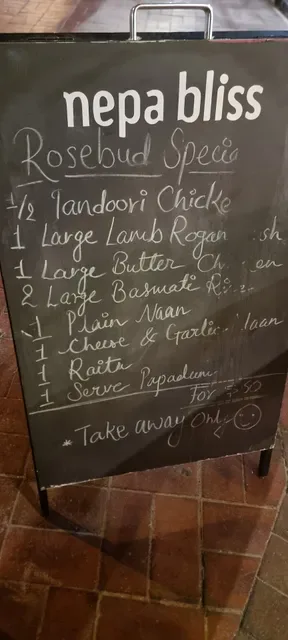 nepa bliss
Rosebud Specia
1/2 Tandoori Chicke
1 Large Lamb Rogan sh
1 Large Butter Ch en
2 Large Basmati Ri
1 Plain Naan
1 Cheese & Garlic Naan
1 Raita
1 Serve Papadum
For
*Take away Only